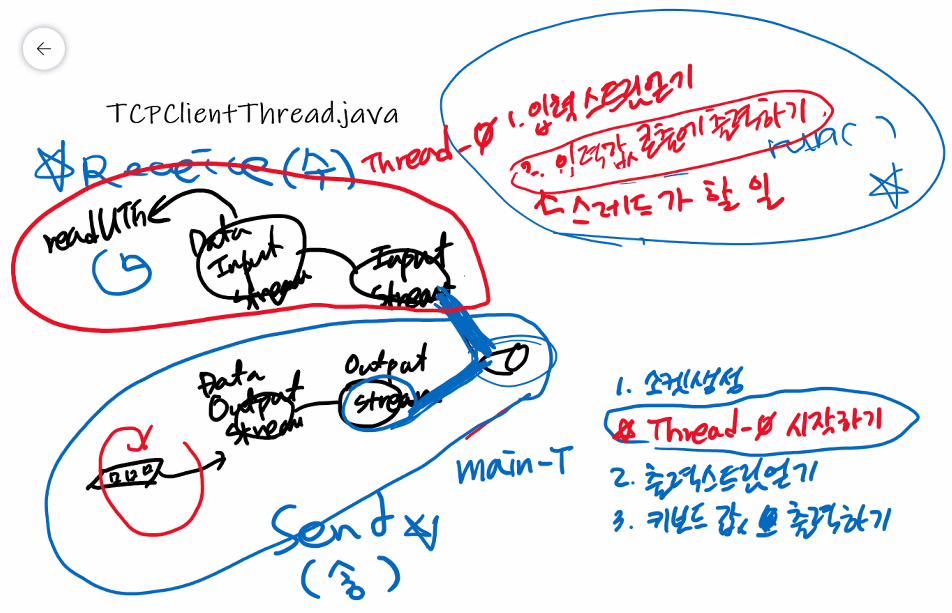 TCPClientThread.java
☆ Receive (수)
Thread-0
1. 입력 스트림 열기
2. 입력값 콘솔에 출력하기
run( )
↑ 스레드가 할 일
☆
readUTF
Data
Input
Stream
Input
Stream
Data
Output
Stream
Output
Stream
main-T
Send ☆
(송)
1. 소켓생성
☆ Thread-0 시작하기
2. 출력스트림 얻기
3. 키보드 값 출력하기